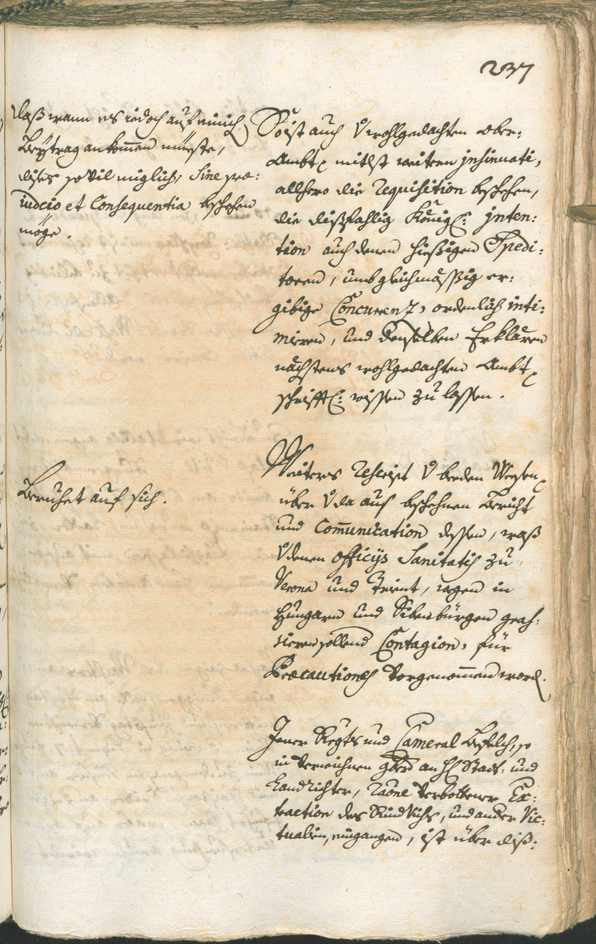 237
daß wann es iedoch auf einich
Beytrag ankommen müeste,
dises so vil möglich, sine præ:
iudicio et Consequentia beschehen
möge.
So ist auch V wohlgedachten ober:
Ambt mitlst weitern insinuati,
allhero die Requisition beschehen,
die dißfahlig Königl: Inten:
tion auch denen hiesigen Spedi:
torn, umb gleichmässig er:
gibige Concurenz, ordenlich inti:
mieren, und derselben Erklären
nächstens wohlgedachten Ambt
schrifftl: wissen zu lassen.
Beruhet auf sich.
Weiters Rescript V beeden Wesen
über V da auf beschehnen Bericht
und Communication dessen, waß
V denen officijs Sanitatis zu
Verona und Trient, wegen in
Hungarn und Sibenbürgen gras:
sieren sollend Contagion, für
Præcautiones vorgenommen word.
Jener Regts und Cameral Befelch, so
in an H Statt: und
Landrichter, verbottener Ex:
traction des Rindvichs, und ander Vic:
tualien, eingangen, ist über diß: